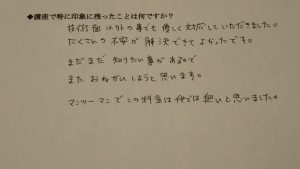 ◆講座で特に印象に残ったことは何ですか？
技術面以外の事でも優しく対応していただきました。
たくさんの不安が解決できてよかったです。
まだまだ知りたい事があるので
またおねがいしようと思います。
マンツーマンでこの料金は他では無いと思いました。